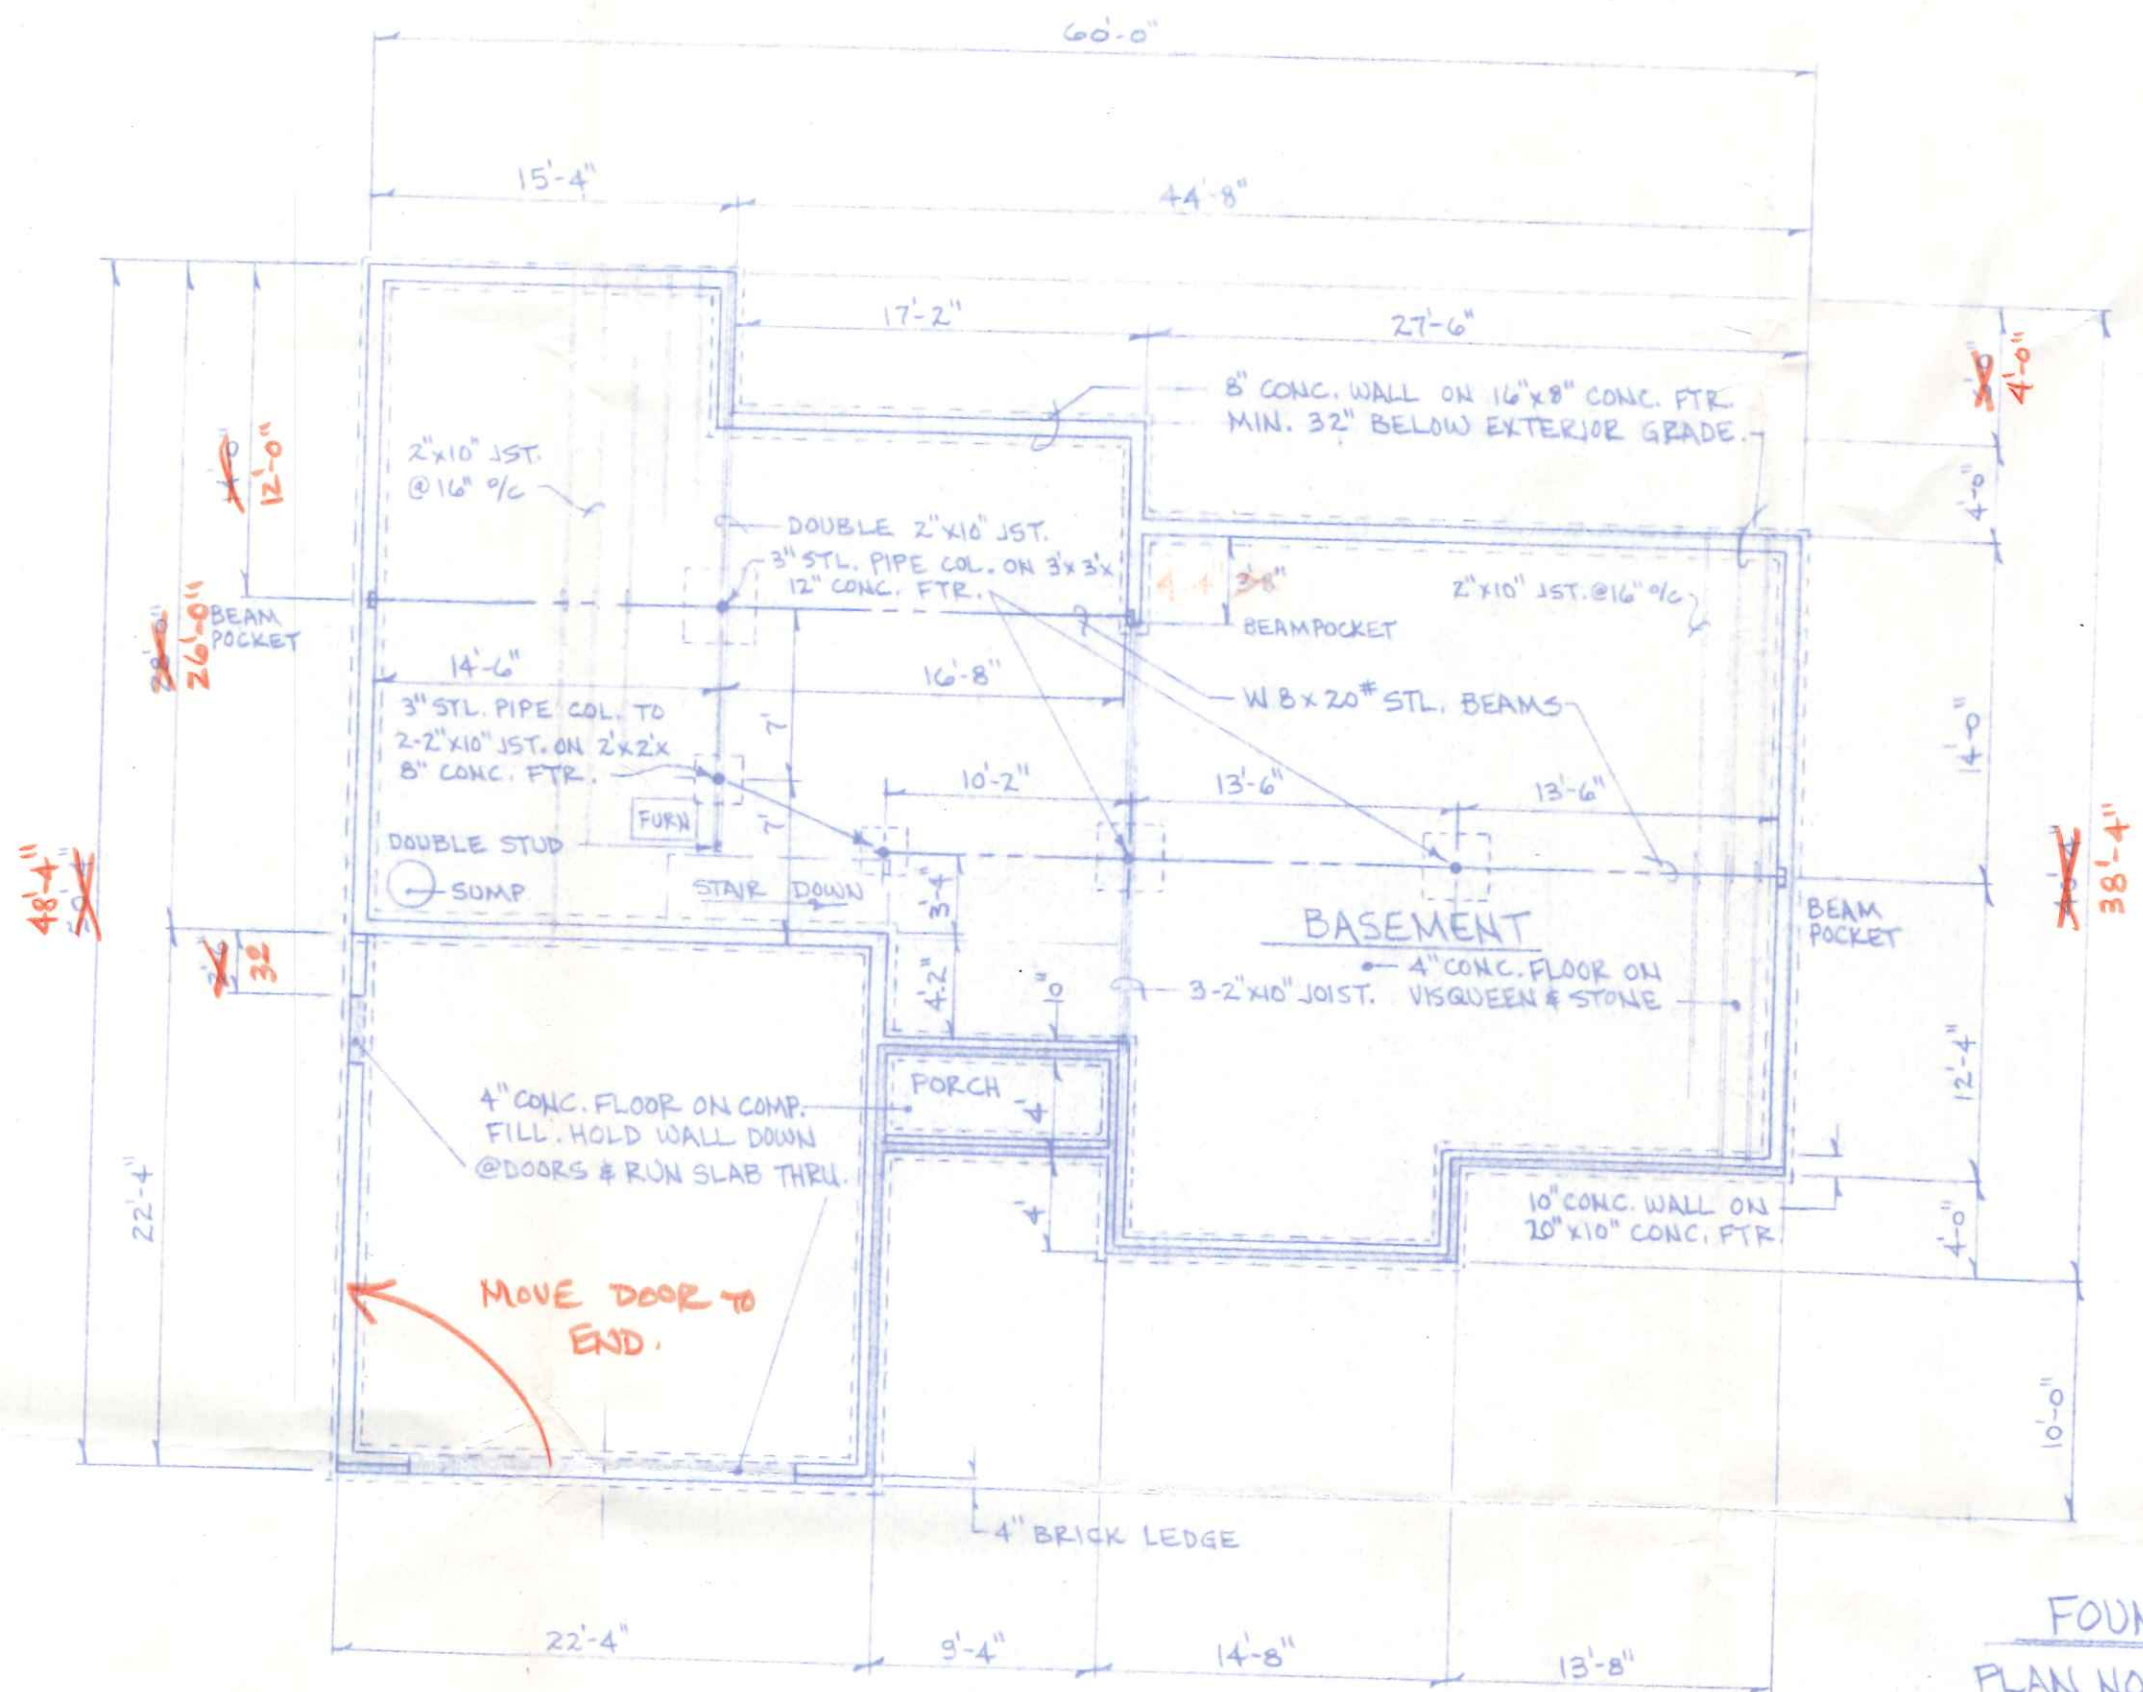 60'-0"
15'-4"
44'-8"
17'-2"
27'-6"
4'-0"
8" CONC. WALL ON 16"x8" CONC. FTR.
MIN. 32" BELOW EXTERIOR GRADE.
4'-0"
12'-0"
2"x10" JST.
@ 16" o/c
DOUBLE 2"x10" JST.
3" STL. PIPE COL. ON 3'x3'x
12" CONC. FTR.
4'-4"
3'-8"
2"x10" JST. @ 16" o/c
BEAM POCKET
26'-0"
BEAM
POCKET
14'-6"
16'-8"
W 8 x 20# STL. BEAMS
3" STL. PIPE COL. TO
2-2"x10" JST. ON 2'x2'x
8" CONC. FTR.
7'
14'-0"
10'-2"
13'-6"
13'-6"
FURN
7'
DOUBLE STUD
SUMP
STAIR DOWN
3'-4"
48'-4"
38'-4"
BASEMENT
4" CONC. FLOOR ON
VISQUEEN & STONE
BEAM
POCKET
32
4'-2"
3-2"x10" JOIST.
12'-4"
PORCH
4'
4" CONC. FLOOR ON COMP.
FILL. HOLD WALL DOWN
@ DOORS & RUN SLAB THRU.
22'-4"
4'
10" CONC. WALL ON
20"x10" CONC. FTR.
4'-0"
MOVE DOOR TO
END.
10'-0"
4" BRICK LEDGE
22'-4"
9'-4"
14'-8"
13'-8"
FOUN
PLAN NO